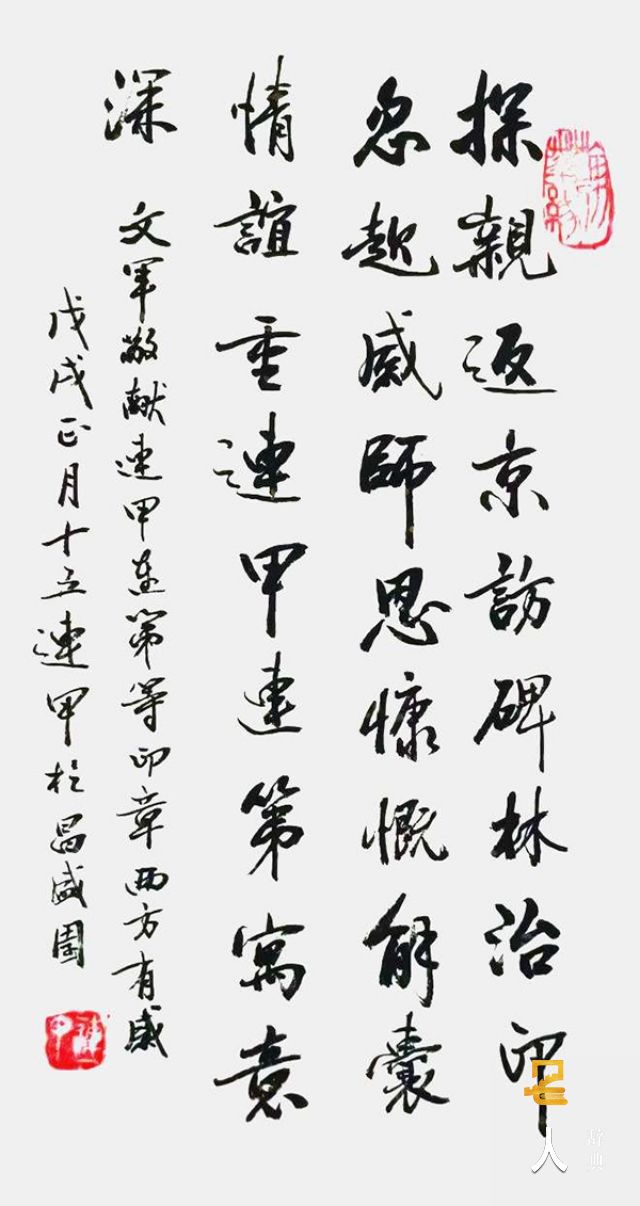 探親返京訪碑林治印
忽起感師恩慷慨解囊
情誼重連甲連第寓意
深 文軍敬獻連甲連第等印章西方有感
戊戌正月十五連甲於昌盛園
名人
辞典